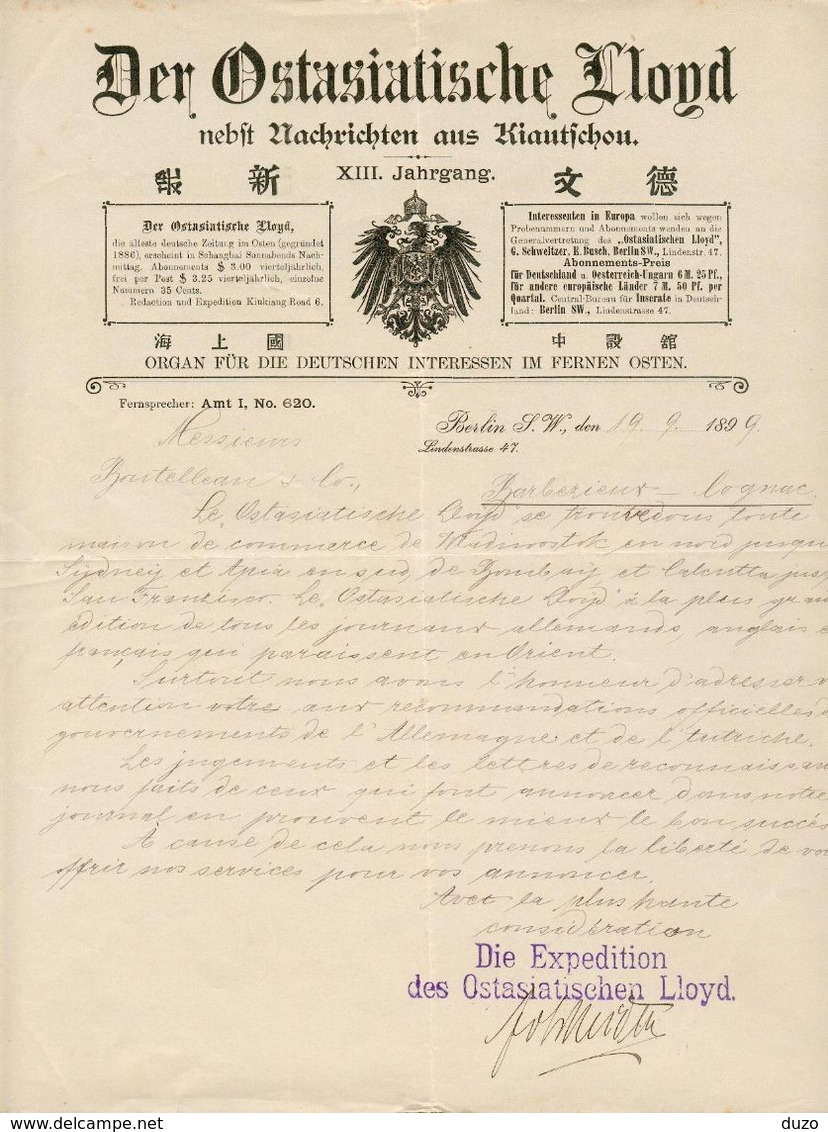 Der Ostasiatische Lloyd
nebst Nachrichten aus Kiautschou.
XIII. Jahrgang.
報 新
文 德
Der Ostasiatische Lloyd,
die älteste deutsche Zeitung im Osten (gegründet
1886), erscheint in Schanghai Sonnabends Nach-
mittag. Abonnements $ 3.00 vierteljährlich,
frei per Post $ 3.25 vierteljährlich, einzelne
Nummern 35 Cents.
Redaction und Expedition Kiukiang Road 6.
Interessenten in Europa wollen sich wegen
Probenummern und Abonnements wenden an die
Generalvertretung des „Ostasiatischen Lloyd",
G. Schweitzer, E. Busch, Berlin SW., Lindenstr. 47.
Abonnements-Preis
für Deutschland u. Oesterreich-Ungarn 6 M. 25 Pf.,
für andere europäische Länder 7 M. 50 Pf. per
Quartal. Central-Bureau für Inserate in Deutsch-
land: Berlin SW., Lindenstrasse 47.
海 上 國
中 設 舘
ORGAN FÜR DIE DEUTSCHEN INTERESSEN IM FERNEN OSTEN.
Fernsprecher: Amt I, No. 620.
Berlin S.W., den 19. 9. 1899.
Lindenstrasse 47.
Messieurs
Boutelleau & Co.,
Barbezieux - Cognac.
Le „Ostasiatische Lloyd" se trouve dans toute
maison de commerce de Wladiwostok en nord jusqu
Sydney et Apia en sud, de Bombay et Calcutta jus
San Francisco. Le „Ostasiatische Lloyd" a la plus gran
édition de tous les journaux allemands, anglais e
français qui paraissent en Orient.
Surtout nous avons l'honneur d'adresser v
attention votre aux recommandations officielles d
gouvernements de l'Allemagne et de l'Autriche.
Les jugements et les lettres de reconnaissan
nous faits de ceux qui font annoncer dans notre
journal en prouvent le mieux le bon succès
A cause de cela nous prenons la liberté de vo
offrir nos services pour vos annoncer.
Avec la plus haute
considération
Die Expedition
des Ostasiatischen Lloyd.
delcampe.net
duzo